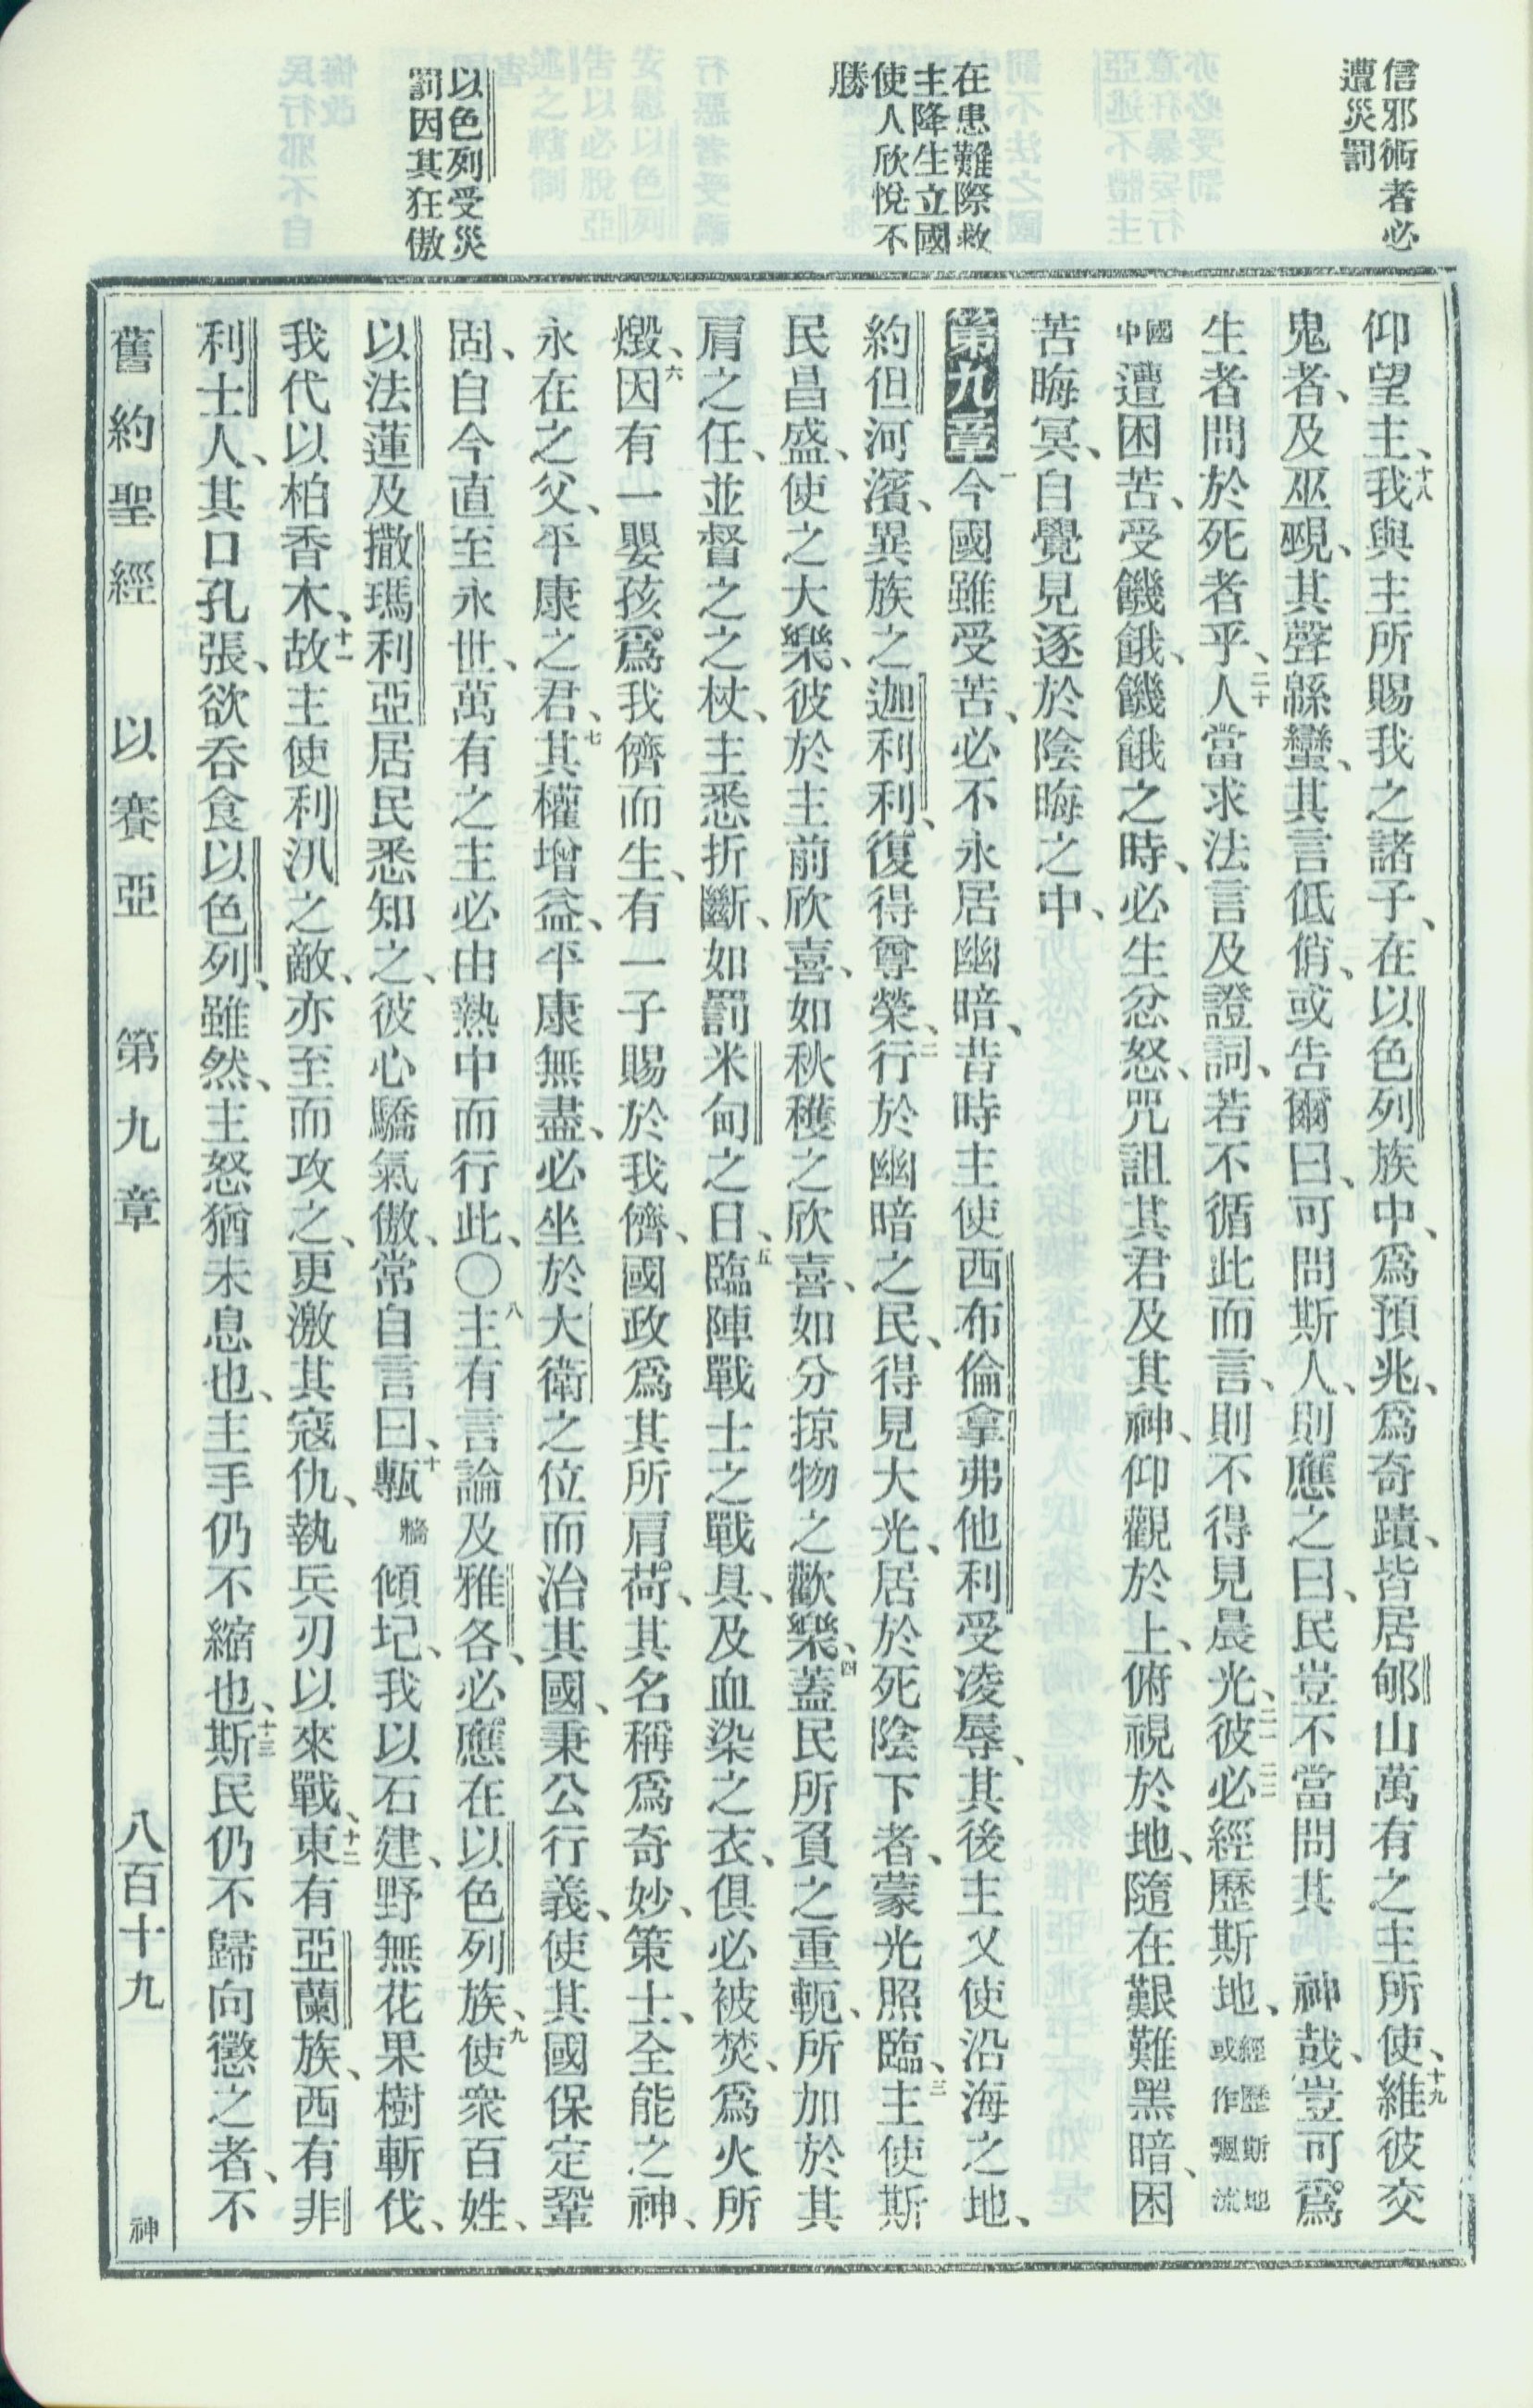 信邪術者必
遭災罰
在患難際救
主降生立國
使人欣悅不
勝
以色列受災
罰因其狂傲
仰望主、十八我與主所賜我之諸子、在以色列族中、爲預兆、爲奇蹟、皆居郇山萬有之主所使、十九維彼交
鬼者、及巫覡、其聲緜蠻、其言低俏、或告爾曰、可問斯人、則應之曰、民豈不當問其　神哉、豈可爲
生者問於死者乎、二十人當求法言及證詞、若不循此而言、則不得見晨光、二一彼必二二經歷斯地、經歷斯地或作飄流
國中遭困苦、受饑餓、饑餓之時、必生忿怒、咒詛其君及其神、仰觀於上、俯視於地、隨在艱難黑暗、困
苦晦冥、自覺見逐於陰晦之中、
第九章一今國雖受苦、必不永居幽暗、昔時主使西布倫拿弗他利受凌辱、其後主又使沿海之地、
約但河濱、異族之迦利利、復得尊榮、二行於幽暗之民、得見大光、居於死陰下者、蒙光照臨、三主使斯
民昌盛、使之大樂、彼於主前欣喜、如秋穫之欣喜、如分掠物之歡樂、四蓋民所負之重軛、所加於其
肩之任、並督之之杖、主悉折斷、如罰米甸之日、五臨陣戰士之戰具、及血染之衣、俱必被焚、爲火所
燬、六因有一嬰孩、爲我儕而生、有一子賜於我儕、國政爲其所肩荷、其名稱爲奇妙、策士、全能之神、
永在之父、平康之君、七其權增益、平康無盡、必坐於大衛之位而治其國、秉公行義、使其國保定鞏
固、自今直至永世、萬有之主必由熱中而行此、〇八主有言論及雅各、必應在以色列族、九使衆百姓、
以法蓮及撒瑪利亞居民悉知之、彼心驕氣傲、常自言曰、十甎牆傾圮、我以石建、野無花果樹斬伐、
我代以柏香木、十一故主使利汛之敵、亦至而攻之、更激其寇仇、執兵刃以來戰、十二東有亞蘭族、西有非
利士人、其口孔張、欲吞食以色列、雖然、主怒猶未息也、主手仍不縮也、十三斯民仍不歸向懲之者、不
舊約聖經　以賽亞　第九章　八百十九　神